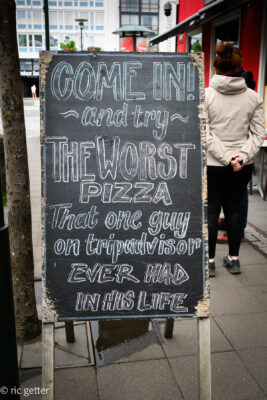 COME IN!
~ and try ~
THE WORST
PIZZA
That one guy
on tripadvisor
EVER HAD
IN HIS LIFE
© ric getter